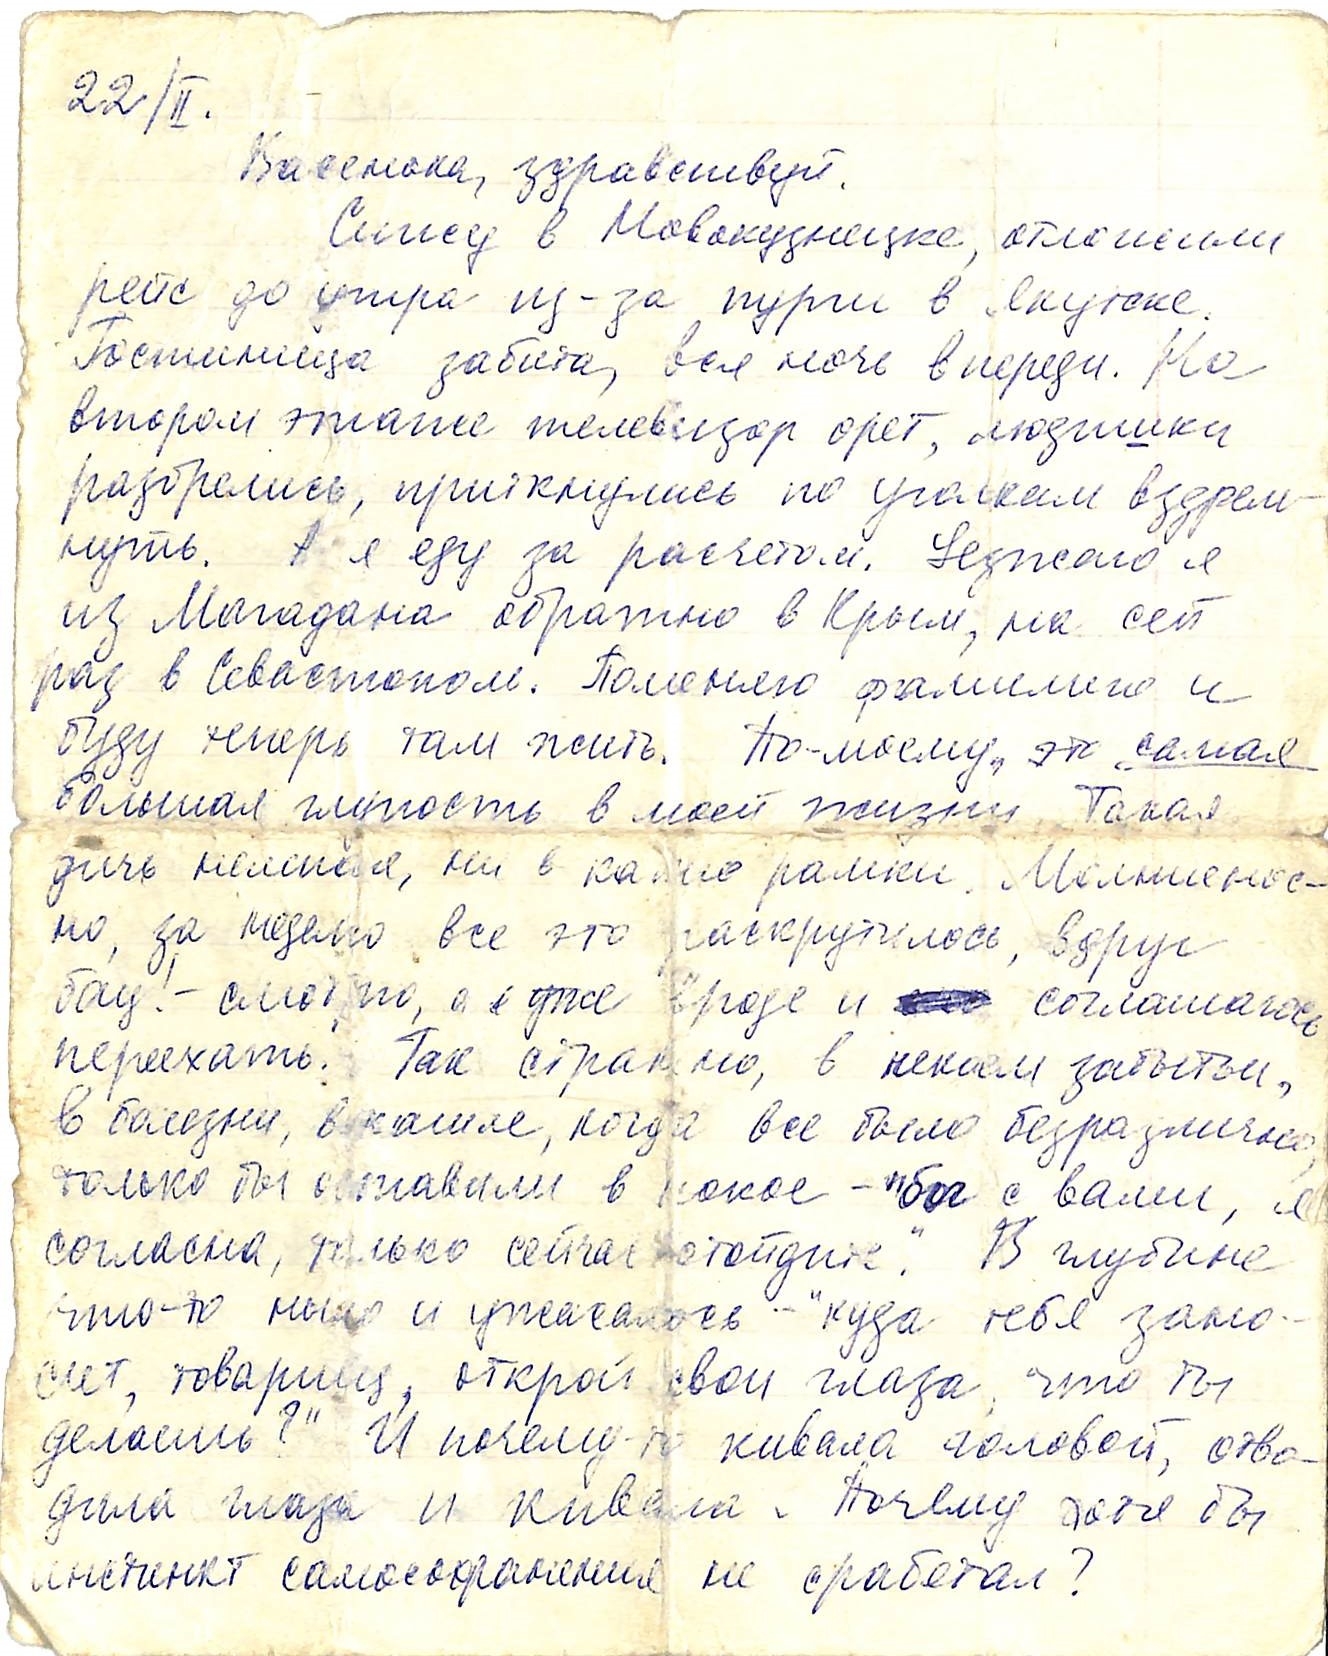 22/II.
Васенька, здравствуй.
Сижу в Новокузнецке, отложили
рейс до утра из-за пурги в Якутске.
Гостиница забита, вся ночь впереди. На
втором этаже телевизор орет, людишки
разбрелись, приткнулись по уголкам вздрем-
нуть. А я еду за расчетом. Уезжаю я
из Магадана обратно в Крым, на сей
раз в Севастополь. Поменяю фамилию и
буду теперь там жить. По-моему, это самая
большая глупость в моей жизни. Такая
дичь нелепая, ни в какие рамки. Молниенос-
но, за неделю все это раскрутилось, вдруг
бац! - смотрю, а я уже вроде и соглашаюсь
переехать. Так странно, в неком забытьи,
в болезни, в кашле, когда все было безразлично,
только бы оставили в покое - "бог с вами, я
согласна, только сейчас отойдите." В глубине
что-то ныло и ужасалось - "куда тебя зано-
сит, товарищ, открой свои глаза, что ты
делаешь?" И почему-то кивала головой, отво-
дила глаза и кивала. Почему хотя бы
инстинкт самосохранения не сработал?